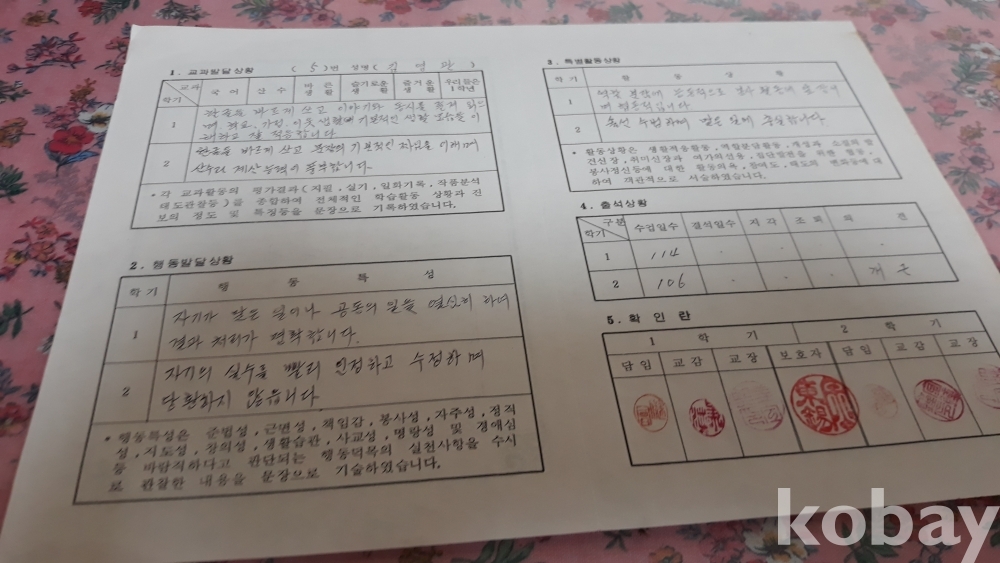 1. 교과발달상황
(5)번 성명(김영관)
교과 학기 국어 산수 바른 생활 슬기로운 생활 즐거운 생활 우리들은 1학년
1 한글을 바르게 쓰고 이야기와 동시를
학교, 가정, 이웃 생활에 기본적인 생활 모습을
잘 적응합니다.
2 한글을 바르게 쓰고 문장의 기본적인
산수의 계산 능력이
• 각 교과활동의 평가결과(지필, 실기, 일화기록, 작품분석
태도관찰등)를 종합하여 전체적인 학습활동 상황과 진
보의 정도 및 특징등을 문장으로 기록하였습니다.
2. 행동발달상황
학기 행동특성
1 자기가 맡은 일이나 공동의 일을 열심히 하며
결과 처리가 명확합니다.
2 자기의 실수를 빨리 인정하고 수정하며
당황하지 않습니다.
• 행동특성은 준법성, 근면성, 책임감, 봉사성, 자주성, 정직
성, 지도성, 창의성, 생활습관, 사교성, 명랑성 및 경애심
등 바람직하다고 판단되는 행동덕목의 실천사항을 수시
로 관찰한 내용을 문장으로 기술하였습니다.
3. 특별활동상황
학기 활동상황
1
2 맡은 일에 충실합니다.
• 활동상황은 생활적응활동, 역할분담활동, 개성과 소질의 발
견신장, 취미신장과 여가의선용, 집단발전을 위한 협동,
봉사정신등에 대한 활동의욕, 참여도, 태도의 변화등에 대
하여 객관적으로 서술하였습니다.
4. 출석상황
구분 학기 수업일수 결석일수 지각 조퇴 의견
1 114 . . .
2 106 . . . 개근
5. 확인란
1학기 2학기
담임 교감 교장 보호자 담임 교감 교장
kobay